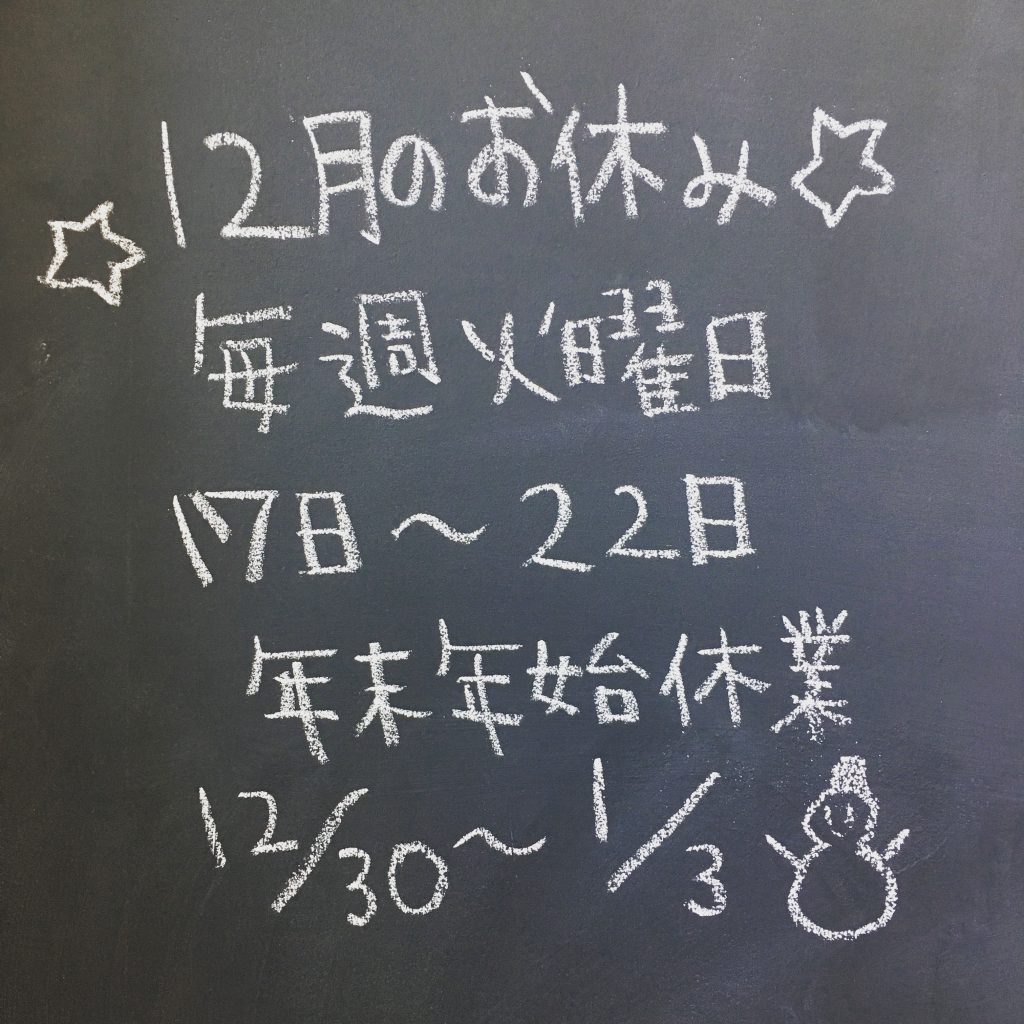 12月のお休み
毎週火曜日
17日〜22日
年末年始休業
12/30〜1/3